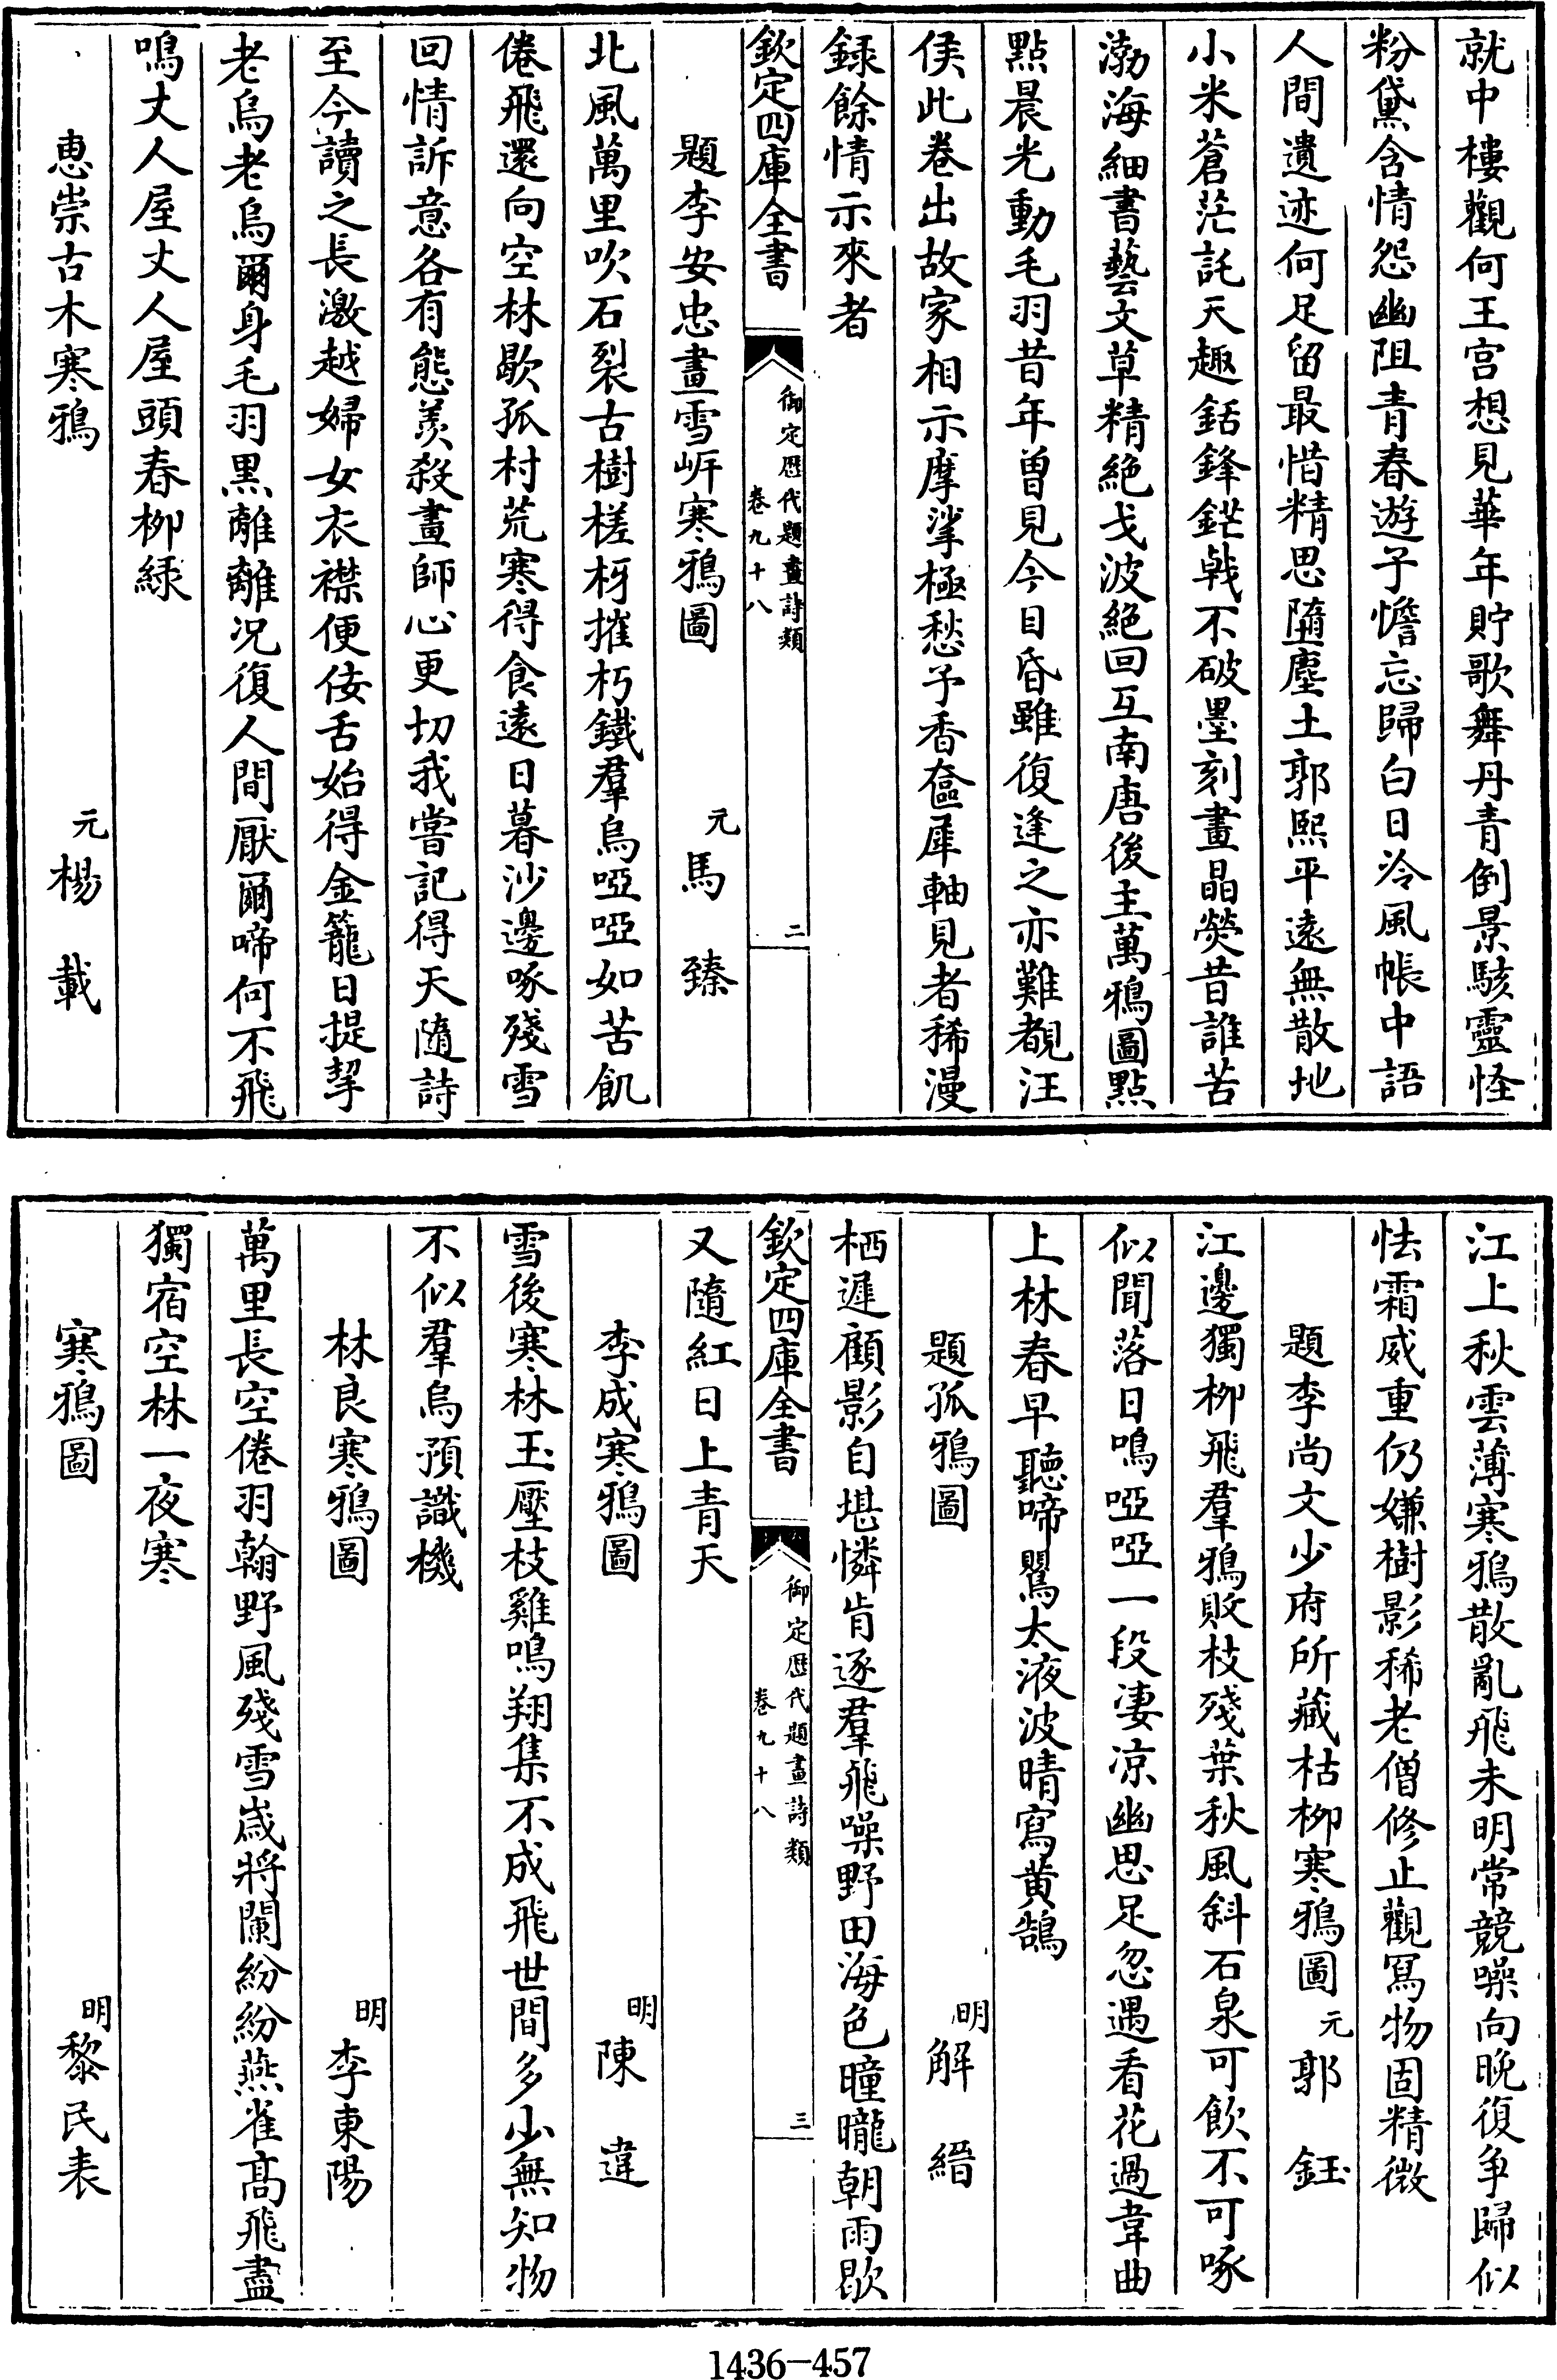 就中樓觀何王宫想見華年貯歌舞丹青倒景駭靈怪
粉黛含情怨幽阻青春遊子憺忘歸白日冷風帳中語
人間遺迹何足留最惜精思墮塵土郭熙平遠無散地
小米蒼茫託天趣銛鋒鋩戟不破墨刻畫晶熒昔誰苦
渤海細書藝文草精絶戈波絶回互南唐後主萬鴉圖點
點晨光動毛羽昔年曾見今目昏雖復逢之亦難覩汪
侯此卷出故家相示摩挲極愁予香奩犀軸見者稀漫
録餘情示來者
欽定四庫全書
御定歴代題畫詩類
卷九十八
二
題李安忠畫雪岓寒鴉圖
元馬臻
北風萬里吹石裂古樹槎枒摧朽鐵羣烏啞啞如苦飢
倦飛還向空林歇孤村荒寒得食遠日暮沙邊啄殘雪
回情訴意各有態羨殺畫師心更切我嘗記得天隨詩
至今讀之長激越婦女衣襟便佞舌始得金籠日提挈
老烏老烏爾身毛羽黑離離况復人間厭爾啼何不飛
鳴丈人屋丈人屋頭春柳緑
惠崇古木寒鴉
元楊載
江上秋雲薄寒鴉散亂飛未明常競噪向晚復争歸似
怯霜威重仍嫌樹影稀老僧修止觀冩物固精微
題李尚文少府所藏枯柳寒鴉圖
元郭鈺
江邊獨柳飛羣鴉敗枝殘葉秋風斜石泉可飲不可啄
似聞落日鳴啞啞一段凄凉幽思足忽遇看花過韋曲
上林春早聽啼鸎太液波晴寫黄鵠
題孤鴉圖
明解縉
栖遲顧影自堪憐肯逐羣飛噪野田海色曈曨朝雨歇
欽定四庫全書
御定歴代題畫詩類
卷九十八
三
又隨紅日上青天
李成寒鴉圖
明陳違
雪後寒林玉壓枝雞鳴翔集不成飛世間多少無知物
不似羣烏預識機
林良寒鴉圖
明李東陽
萬里長空倦羽翰野風殘雪歲將闌紛紛燕雀高飛盡
獨宿空林一夜寒
寒鴉圖
明黎民表
1436-457